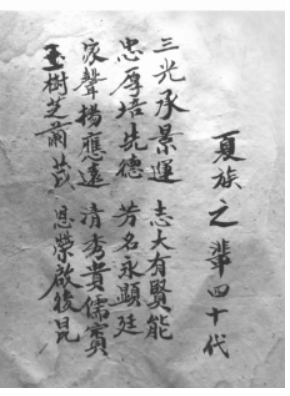 夏族之輩四十代
三光承景運 志大有賢能
忠厚培先德 芳名永顯廷
家聲揚應遠 清秀貴儒賓
玉樹芝茂 恩榮啟後昆